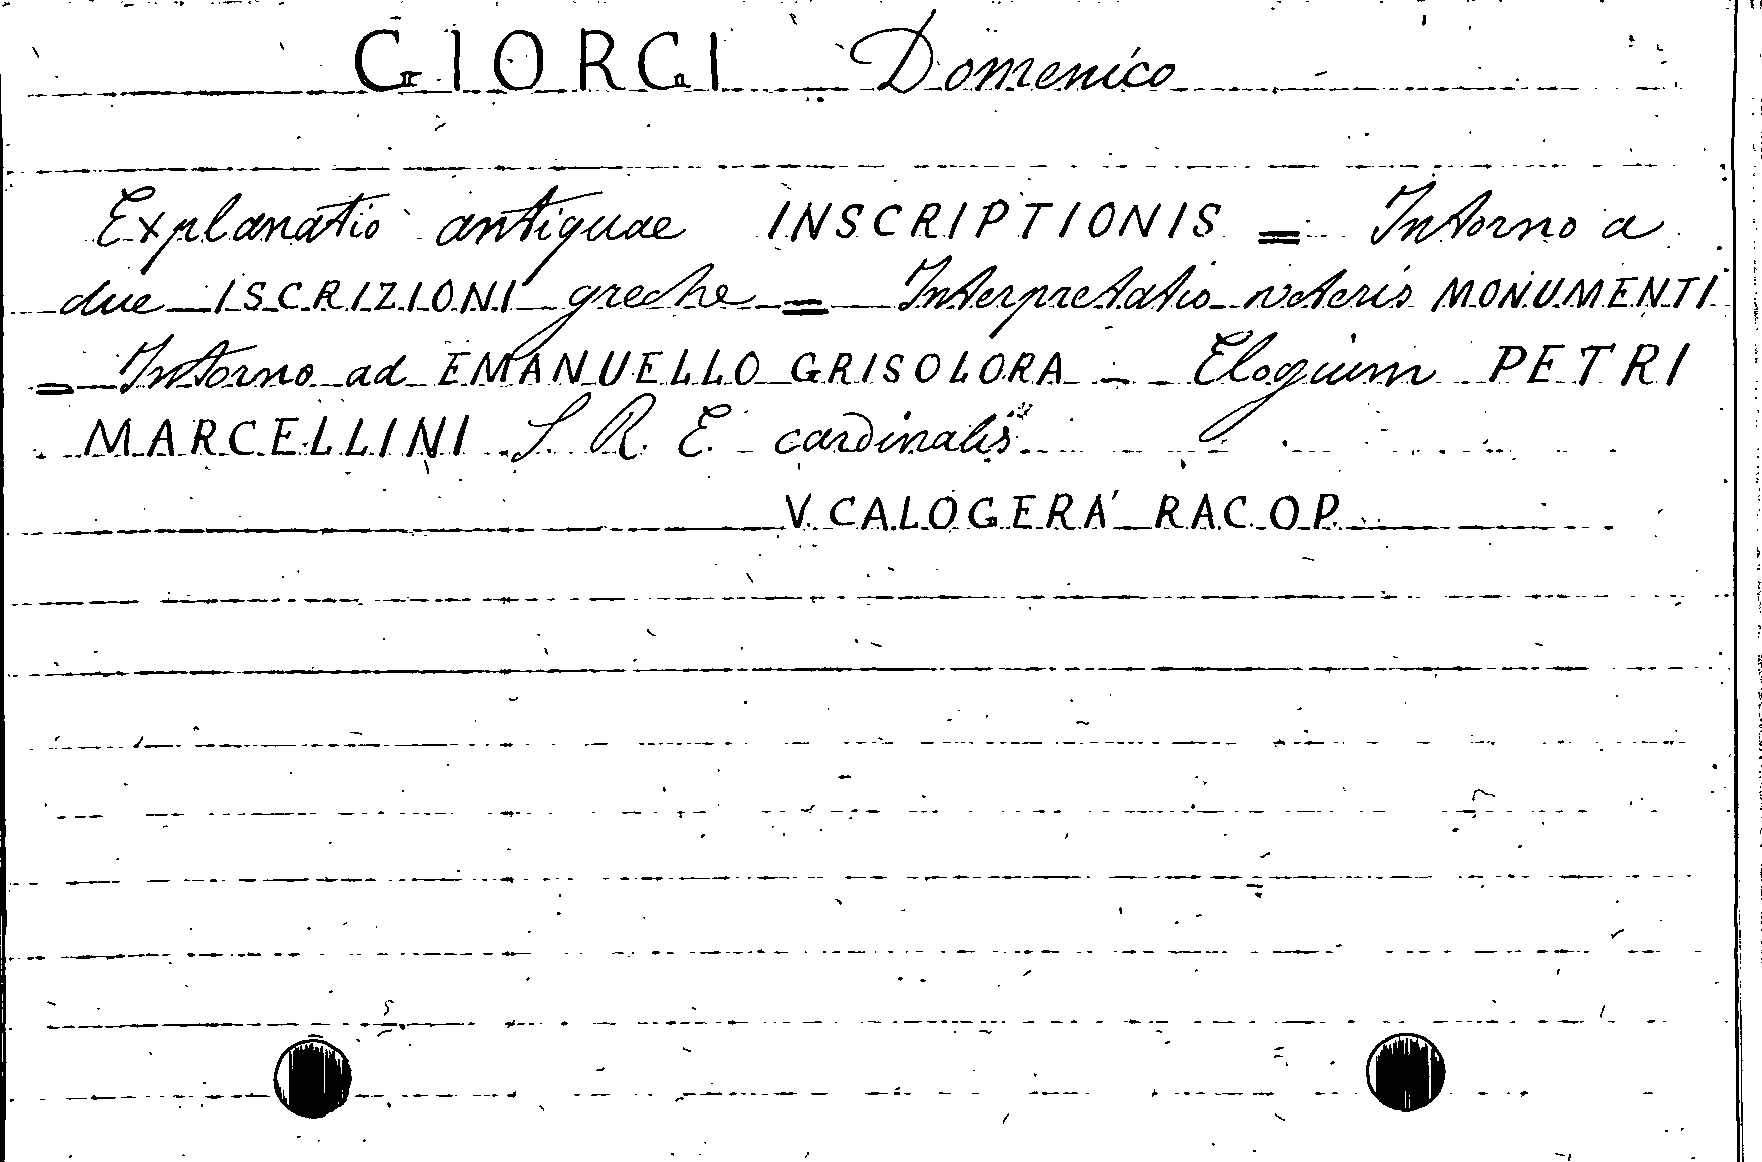 GIORGI Domenico
Explanatio antiquae INSCRIPTIONIS = Intorno a
due ISCRIZIONI greche = Interpretatio veteris MONUMENTI
= Intorno ad EMANUELLO GRISOLORA - Elogium PETRI
MARCELLINI S. R. E. cardinalis
V. CALOGERA' RAC. OP.